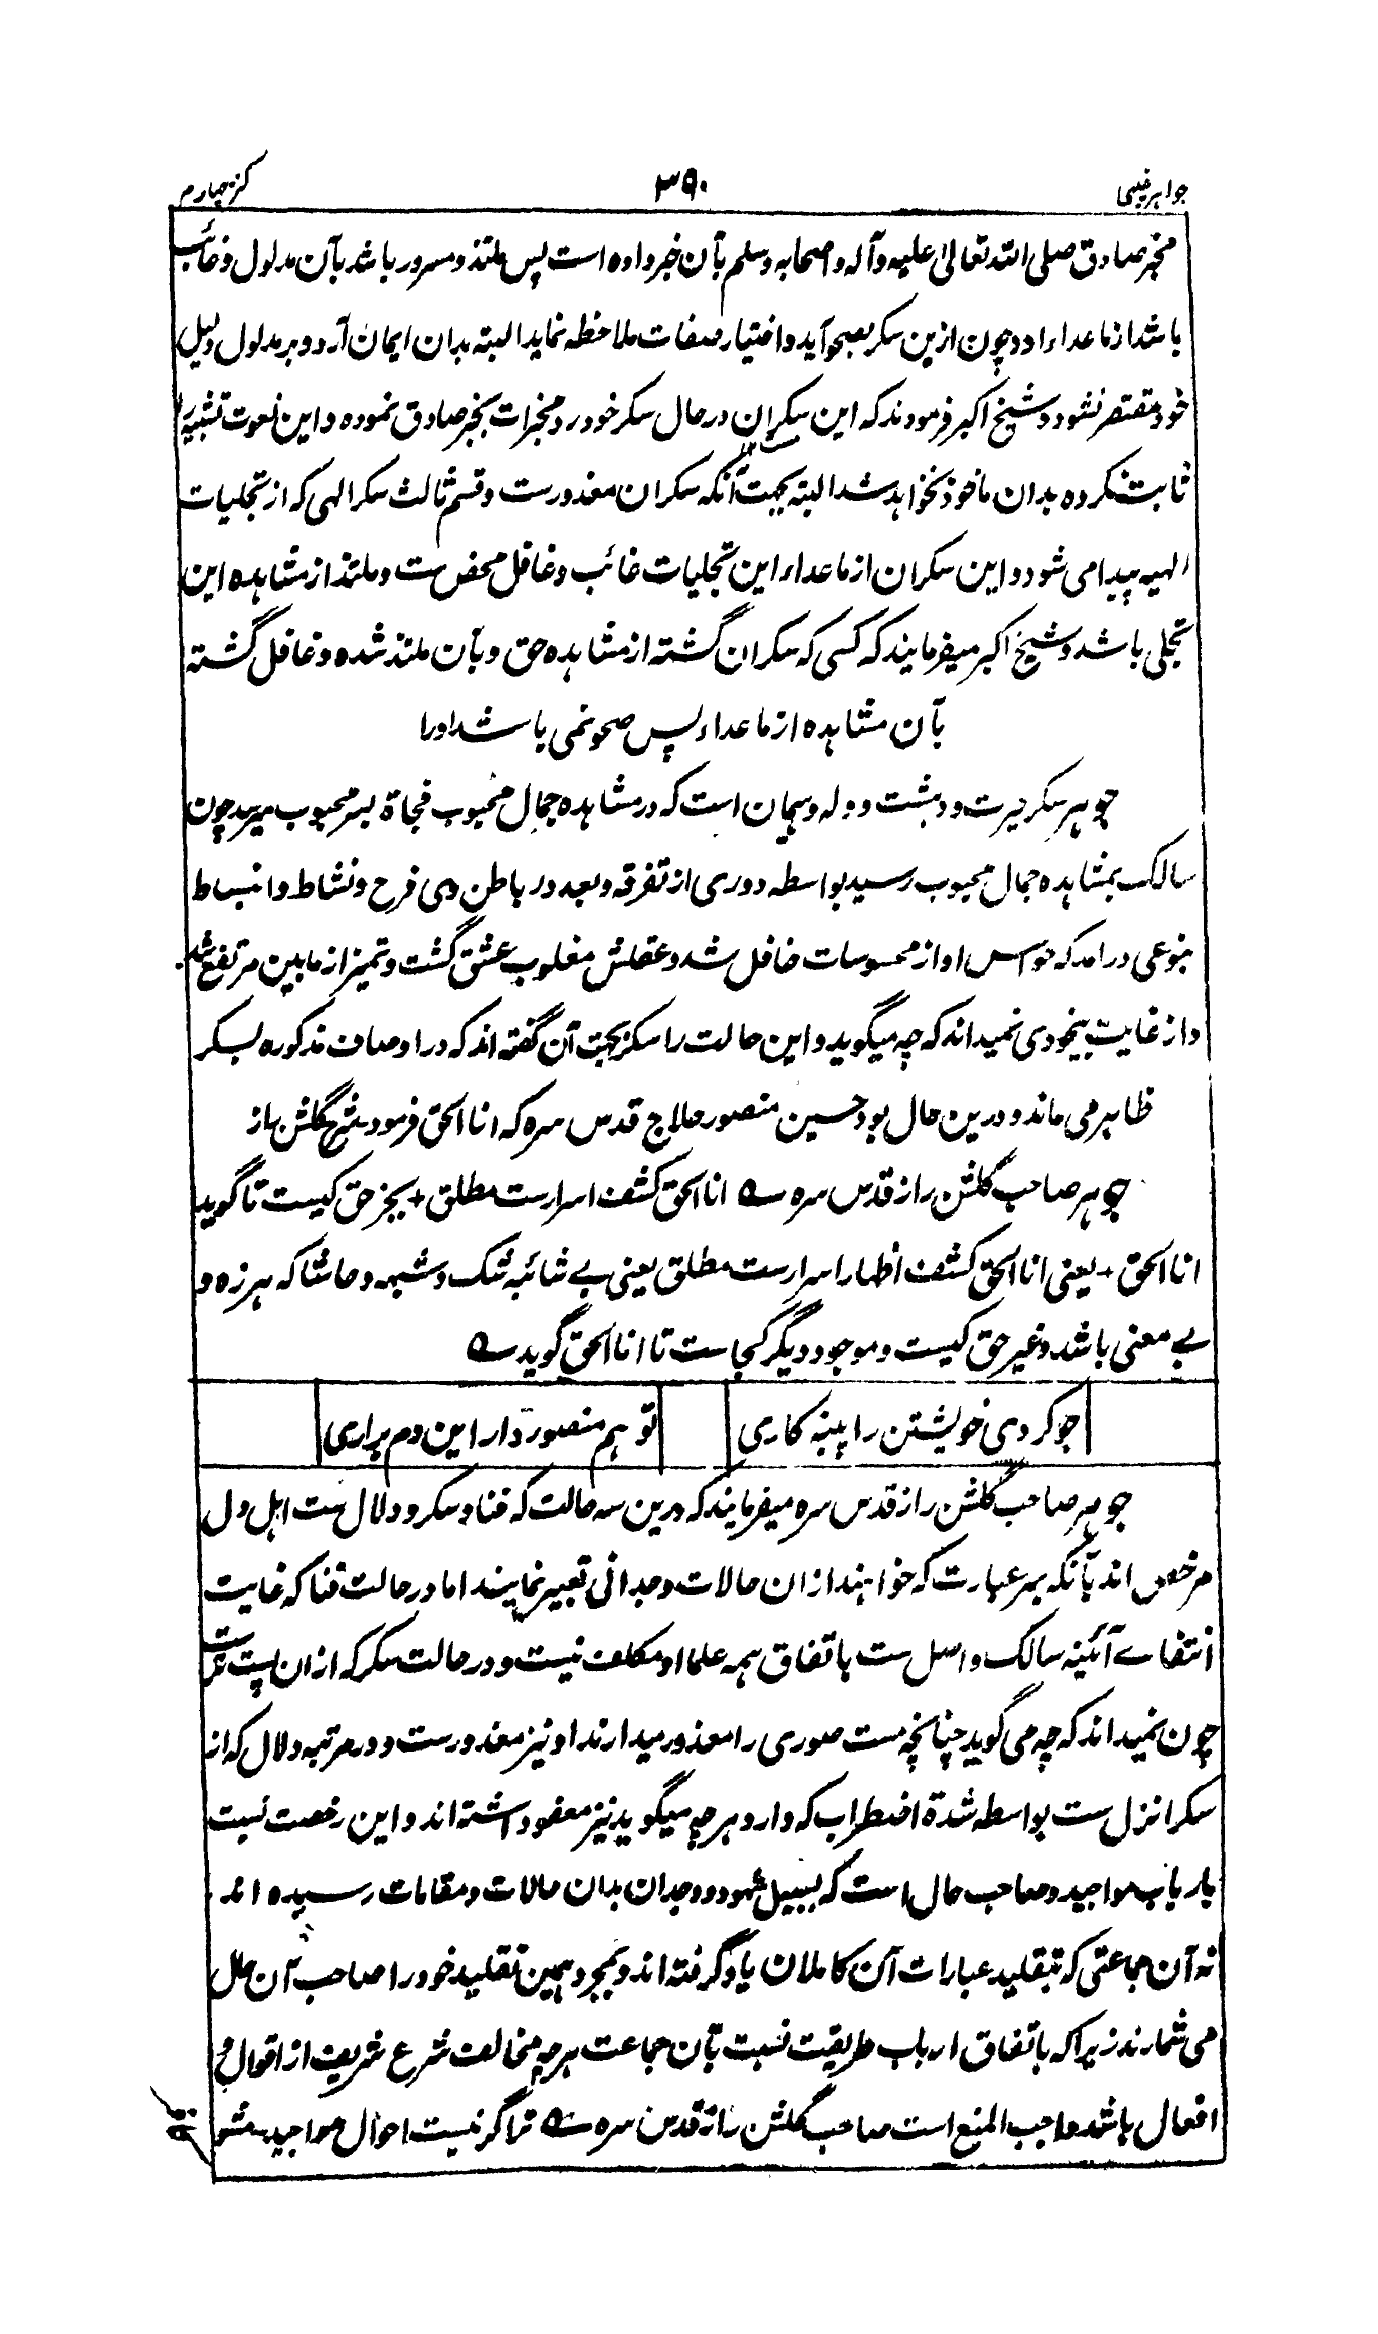 جواہر غیبی
۳۹۰
کنز چہارم
مخبر صادق صلی اللہ تعالیٰ علیہ وآلہ واصحابہ وسلم بآن خبر داده است پس ملتذ و مسرور باشد بآن مدلول و غائب
باشد از ماعداء او و چون ازین سکر بصحو آید و اختیار صفات ملاحظہ نماید البتہ بدان ایمان آرد و بر مدلول دلیل
خود مقتصر نشود و شیخ اکبر فرمودند کہ این سکران در حال سکر خود رد مخبرات مخبر صادق نموده و این نعوت تشبیہ را
ثابت نکرده بدان ماخوذ نخواہد شد البتہ بجہت آنکہ سکران معذورست و قسم ثالث سکر الہی کہ از تجلیات
الہیہ پیدا می شود و این سکران از ماعداء این تجلیات غائب و غافل محض ست و ملتذ از مشاہده این
تجلی باشد و شیخ اکبر میفرمایند کہ کسی کہ سکران گشتہ از مشاہده حق و بآن ملتذ شده و غافل گشتہ
بآن مشاہده از ماعداء پس صحو نمی باشد اورا
جوہر سکر حیرت و دہشت و ولہ و ہیمان است کہ در مشاہده جمال محبوب فجاة بسر محبوب میرسد چون
سالک بمشاہده جمال محبوب رسید بواسطہ دوری از تفرقہ و بعد در باطن وی فرح و نشاط و انبساط
بنوعی درامد کہ حواس او از محسوسات غافل شد و عقلش مغلوب عشق گشت و تمیز از مابین مرتفع شد
و از غایت بیخودی نمیداند کہ چہ میگوید و این حالت را سکر بجہت آن گفتہ اند کہ در اوصاف مذکوره بسکر
ظاہر می ماند و درین حال بود حسین منصور حلاج قدس سره کہ انا الحق فرمود شرح گلشن راز
جوہر صاحب گلشن راز قدس سره ؎ انا الحق کشف اسرارست مطلق + بجز حق کیست تا گوید
انا الحق + یعنی انا الحق کشف اظہار اسرارست مطلق یعنی بے شائبہ شک و شبہہ و حاشا کہ ہرزه و
بے معنی باشد و غیر حق کیست و موجود دیگر کجاست تا انا الحق گوید ؎
چو کردی خویشتن را پنبہ کاری
تو ہم منصور دار این دم براری
جوہر صاحب گلشن راز قدس سره میفرمایند کہ درین سہ حالت کہ فنا و سکر و دلال ست اہل دل
مرخص اند بآنکہ بہر عبارت کہ خواہند ازان حالات وجدانی تعبیر نمایند اما در حالت فنا کہ غایت
انتفاے آئینہ سالک واصل ست باتفاق ہمہ علما او مکلف نیست و در حالت سکر کہ ازان پست تر ست
چون نمیداند کہ چہ می گوید چنانچہ مست صوری را معذور میدارند او نیز معذورست و در مرتبہ دلال کہ از
سکر انزل ست بواسطہ شدة اضطراب کہ دارد ہر چہ میگوید نیز معفو داشتہ اند و این رخصت نسبت
بارباب مواجید و صاحب حال است کہ بسبیل شہود و وجدان بدان حالات و مقامات رسیده اند
نہ آن جماعتی کہ بتقلید عبارات آن کاملان یاد گرفتہ اند و بمجرد ہمین تقلید خود را صاحب آن حال
می شمارند زیرا کہ باتفاق ارباب طریقت نسبت بآن جماعت ہر چہ مخالف شرع شریف از اقوال و
افعال باشد واجب المنع است صاحب گلشن راز قدس سره ؎ ترا گر نیست احوال مواجید مشو